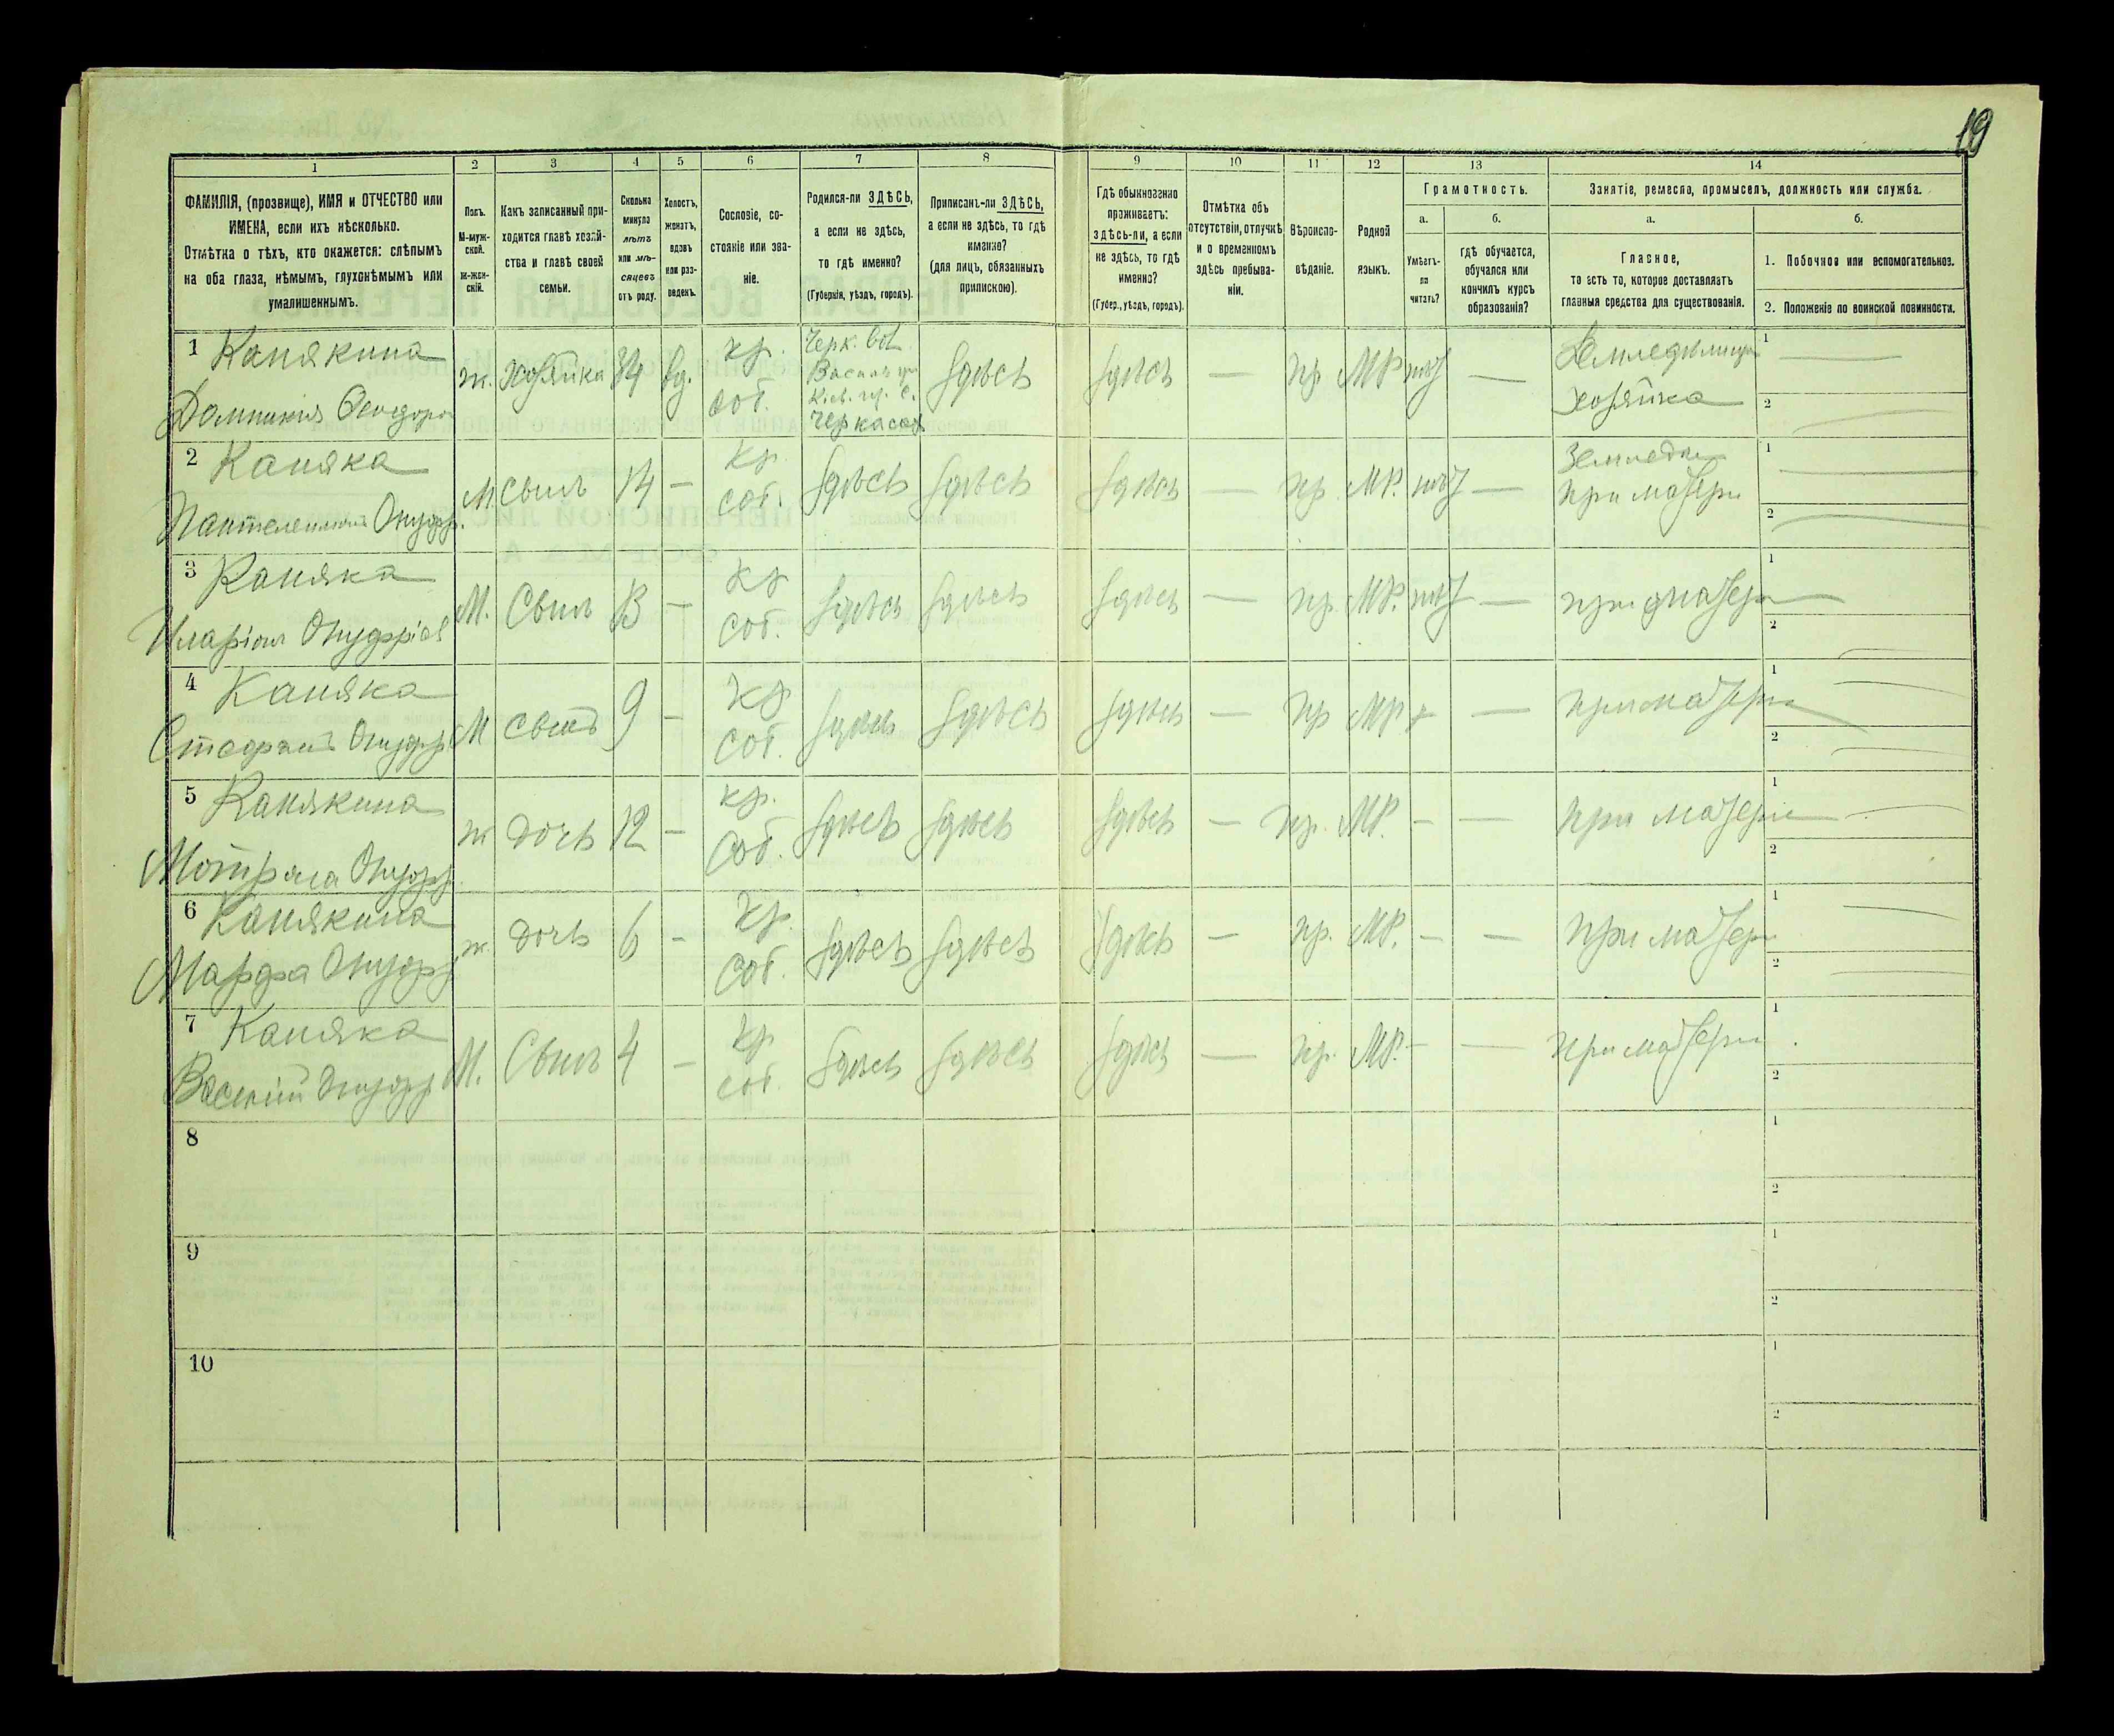 19
1 2 3 4 5 6 7 8 9 10 11 12 13 14
ФАМИЛІЯ, (прозвище), ИМЯ и ОТЧЕСТВО или
ИМЕНА, если ихъ нѣсколько.
Отмѣтка о тѣхъ, кто окажется: слѣпымъ
на оба глаза, нѣмымъ, глухонѣмымъ или
умалишеннымъ.
Полъ.
М-муж-
ской.
Ж-жен-
скій.
Какъ записанный при-
ходится главѣ хозяй-
ства и главѣ своей
семьи.
Сколько
минуло
лѣтъ
или мѣ-
сяцевъ
отъ роду.
Холостъ,
женатъ,
вдовъ
или раз-
веденъ.
Сословіе, со-
стояніе или зва-
ніе.
Родился-ли ЗДѢСЬ,
а если не здѣсь,
то гдѣ именно?
(Губернія, уѣздъ, городъ).
Приписанъ-ли ЗДѢСЬ,
а если не здѣсь, то гдѣ
именно?
(для лицъ, обязанныхъ
припискою).
Гдѣ обыкновенно
проживаетъ:
здѣсь-ли, а если
не здѣсь, то гдѣ
именно?
(Губер., уѣздъ, городъ).
Отмѣтка объ
отсутствіи, отлучкѣ
и о временномъ
здѣсь пребыва-
ніи.
Вѣроиспо-
вѣданіе.
Родной
языкъ.
Грамотность.
а.
Умѣетъ-
ли
читать?
б.
гдѣ обучается,
обучался или
кончилъ курсъ
образованія?
Занятіе, ремесло, промыселъ, должность или служба.
а.
Главное,
то есть то, которое доставляетъ
главныя средства для существованія.
б.
1. Побочное или вспомогательное.
2. Положеніе по воинской повинности.
1 Канякина
Домникия Феодоро
ж. Хозяйка 34 вд. кр. соб.
Черк.
Кіев. гу. с.
Черкасах
здѣсь здѣсь — пр. МР. нѣт —
Земледѣлица
хозяйка
1 —
2 —
2 Каняка
Пантелеимон Онуфр.
М. Сынъ 14 — кр. соб. здѣсь здѣсь здѣсь — пр. МР. нѣт —
Землед
при матери
1 —
2 —
3 Каняка
Иларіон Онуфріев
М. Сынъ 13 — кр. соб. здѣсь здѣсь здѣсь — пр. МР. нѣт — при матери
1
2
4 Каняка
Стефанъ Онуфр
М сынъ 9 — кр. соб. здѣсь здѣсь здѣсь — пр МР — при матери
1 —
2 —
5 Канякина
Мотряна Онуфр.
ж дочь 12 — кр. соб. здѣсь здѣсь здѣсь — пр. МР. — — при матери
1 —
2
6 Канякина
Марфа Онуфр
ж. дочь 6 — кр. соб. здѣсь здѣсь здѣсь — пр. МР. — — при матери
1 —
2 —
7 Каняка
Василій Онуфр
М. Сынъ 4 — кр соб. здѣсь здѣсь здѣсь — пр. МР. — — при матери
1
2
8
1
2
9
1
2
10
1
2